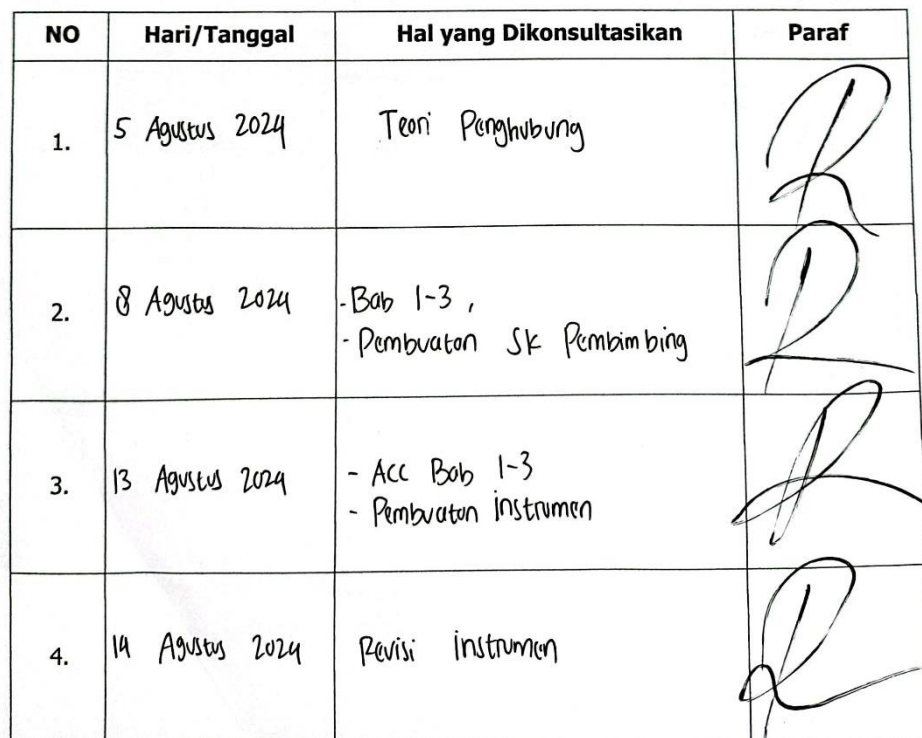 NO Hari/Tanggal Hal yang Dikonsultasikan Paraf
1. 5 Agustus 2024 Teori Penghubung
2. 8 Agustus 2024 - Bab 1-3 ,
- Pembuatan SK Pembimbing
3. 13 Agustus 2024 - Acc Bab 1-3
- Pembuatan instrumen
4. 14 Agustus 2024 Revisi instrumen